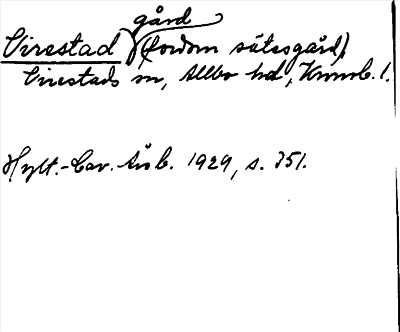 gård
Virestad (fordom sätesgård)
Virestads sn, Allbo hd, Kronob. l.
Hylt.-Cav. Årsb. 1929, s. 351.